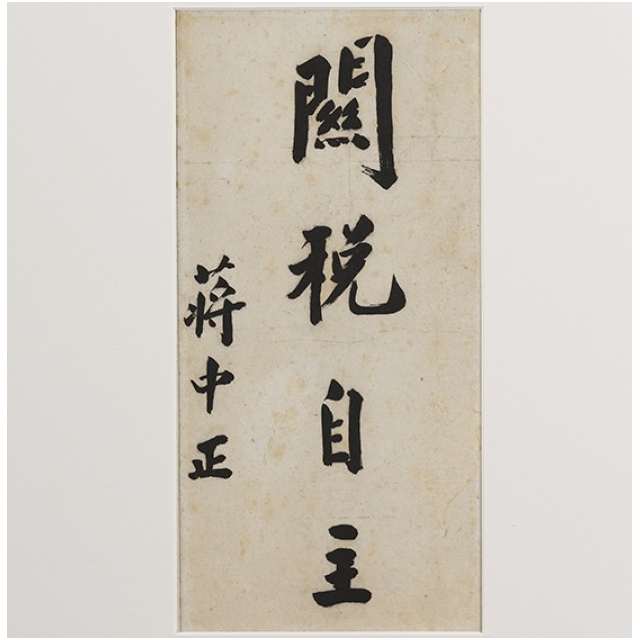 關稅自主
蔣中正